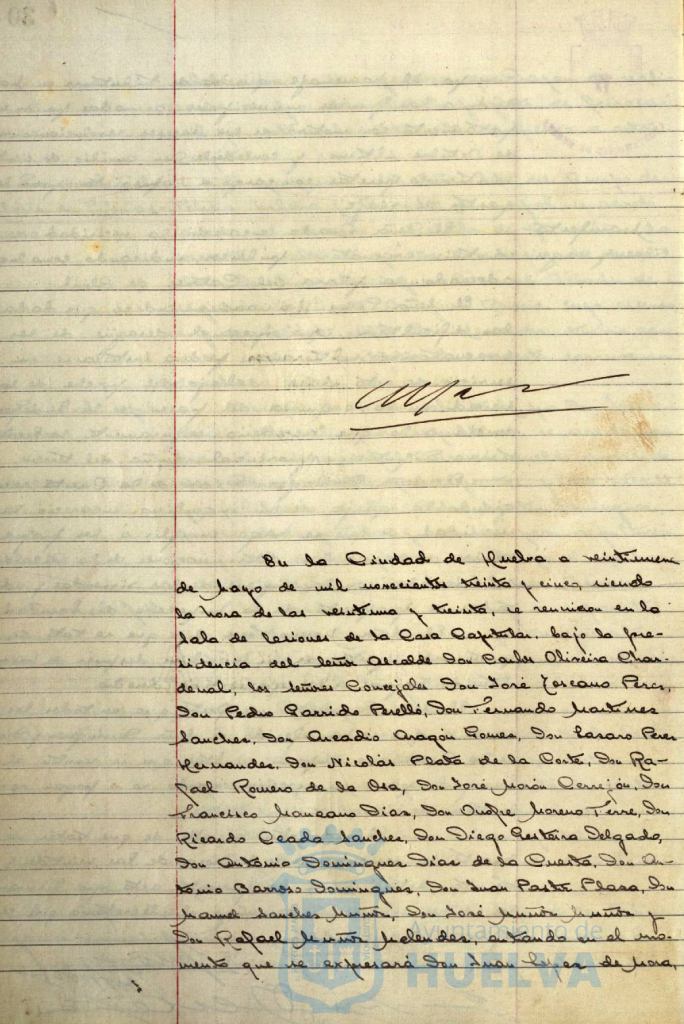 En la Ciudad de Huelva a veintinueve
de Mayo de mil novecientos treinta y cinco, siendo
la hora de las veintiuna y treinta, se reunieron en la
Sala de Sesiones de la Casa Capitular, bajo la pre-
sidencia del Señor Alcalde Don Carlos Oliveira Char-
denal, los Señores Concejales Don José Toscano Perez,
Don Pedro Garrido Perelló, Don Fernando Martinez
Sanchez, Don Arcadio Aragón Gomez, Don Lazaro Perez
Hernandez, Don Nicolás Plata de la Corte, Don Ra-
fael Romero de la Osa, Don José Morón Cerrejón, Don
Francisco Manzano Diaz, Don Onofre Moreno Terre, Don
Ricardo Ceada Sanchez, Don Diego Delgado,
Don Antonio Dominguez Diaz de la Cuesta, Don An-
tonio Barroso Dominguez, Don Juan Plaza, Don
Manuel Sanchez Muñoz, Don José Muñoz Muñoz y
Don Rafael Muñoz Melendez, entrando en el mo-
mento que se expresará Don Juan Lopez de Mora,
Ayuntamiento de
HUELVA